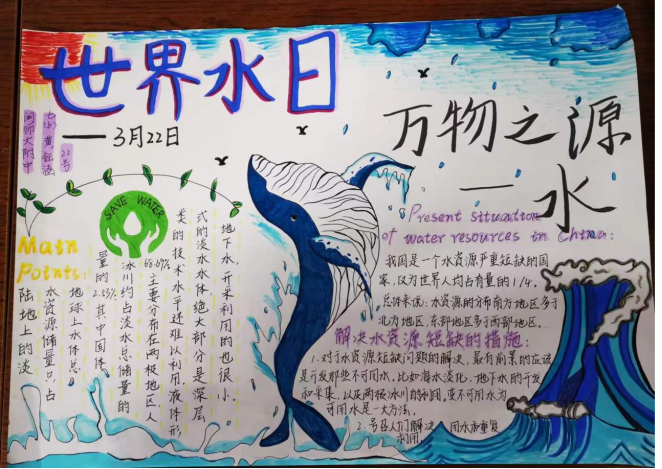 世界水日
——3月22日
闽师大附中
22号
万物之源
——水
SAVE WATER
Main
Points:
陆地上的淡
水资源储量只占
地球上水体总
量的2.53%,其中固体
冰川约占淡水总储量的
68.69%,主要分布在两极地区,人
类的技术水平还难以利用,液体形
式的淡水水体绝大部分是深层
地下水,开采利用的也很小。
Present situation
of water resources in China:
我国是一个水资源严重短缺的国
家,仅为世界人均占有量的1/4。
总体来说:水资源的分布南方地区多于
北方地区,东部地区多于西部地区。
解决水资源短缺的措施:
1.对于水资源短缺问题的解决,最有前景的应该
是开发那些不可用水,比如海水淡化,地下水的开发
和采集,以及两极冰川的利用。变不可用水为
可用水是一大方法。
2.号召人们解决 用水和重复
利用。